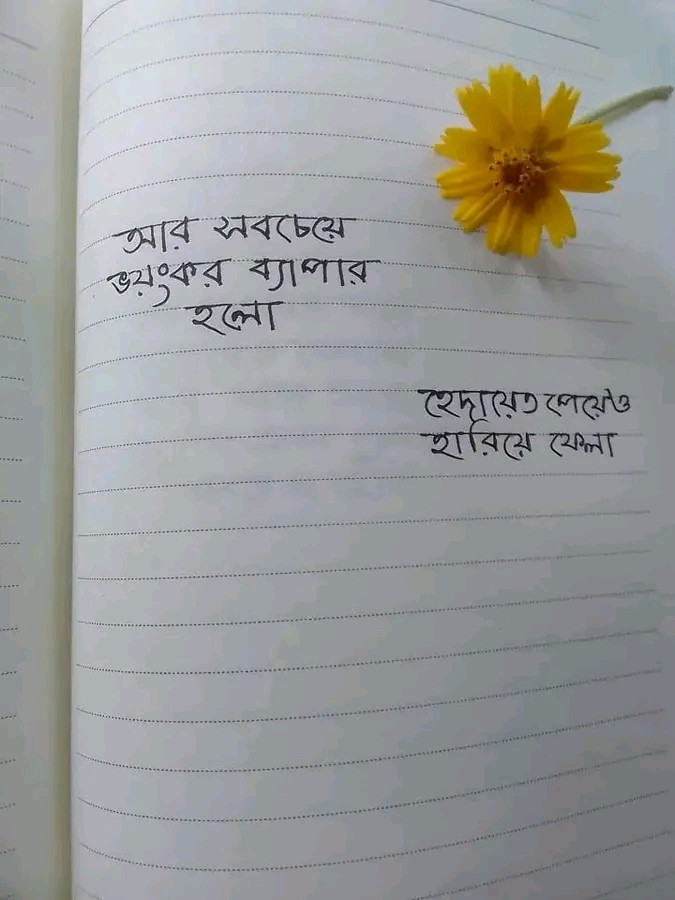 আর সবচেয়ে
ভয়ংকর ব্যাপার
হলো
হেদায়েত পেয়েও
হারিয়ে ফেলা